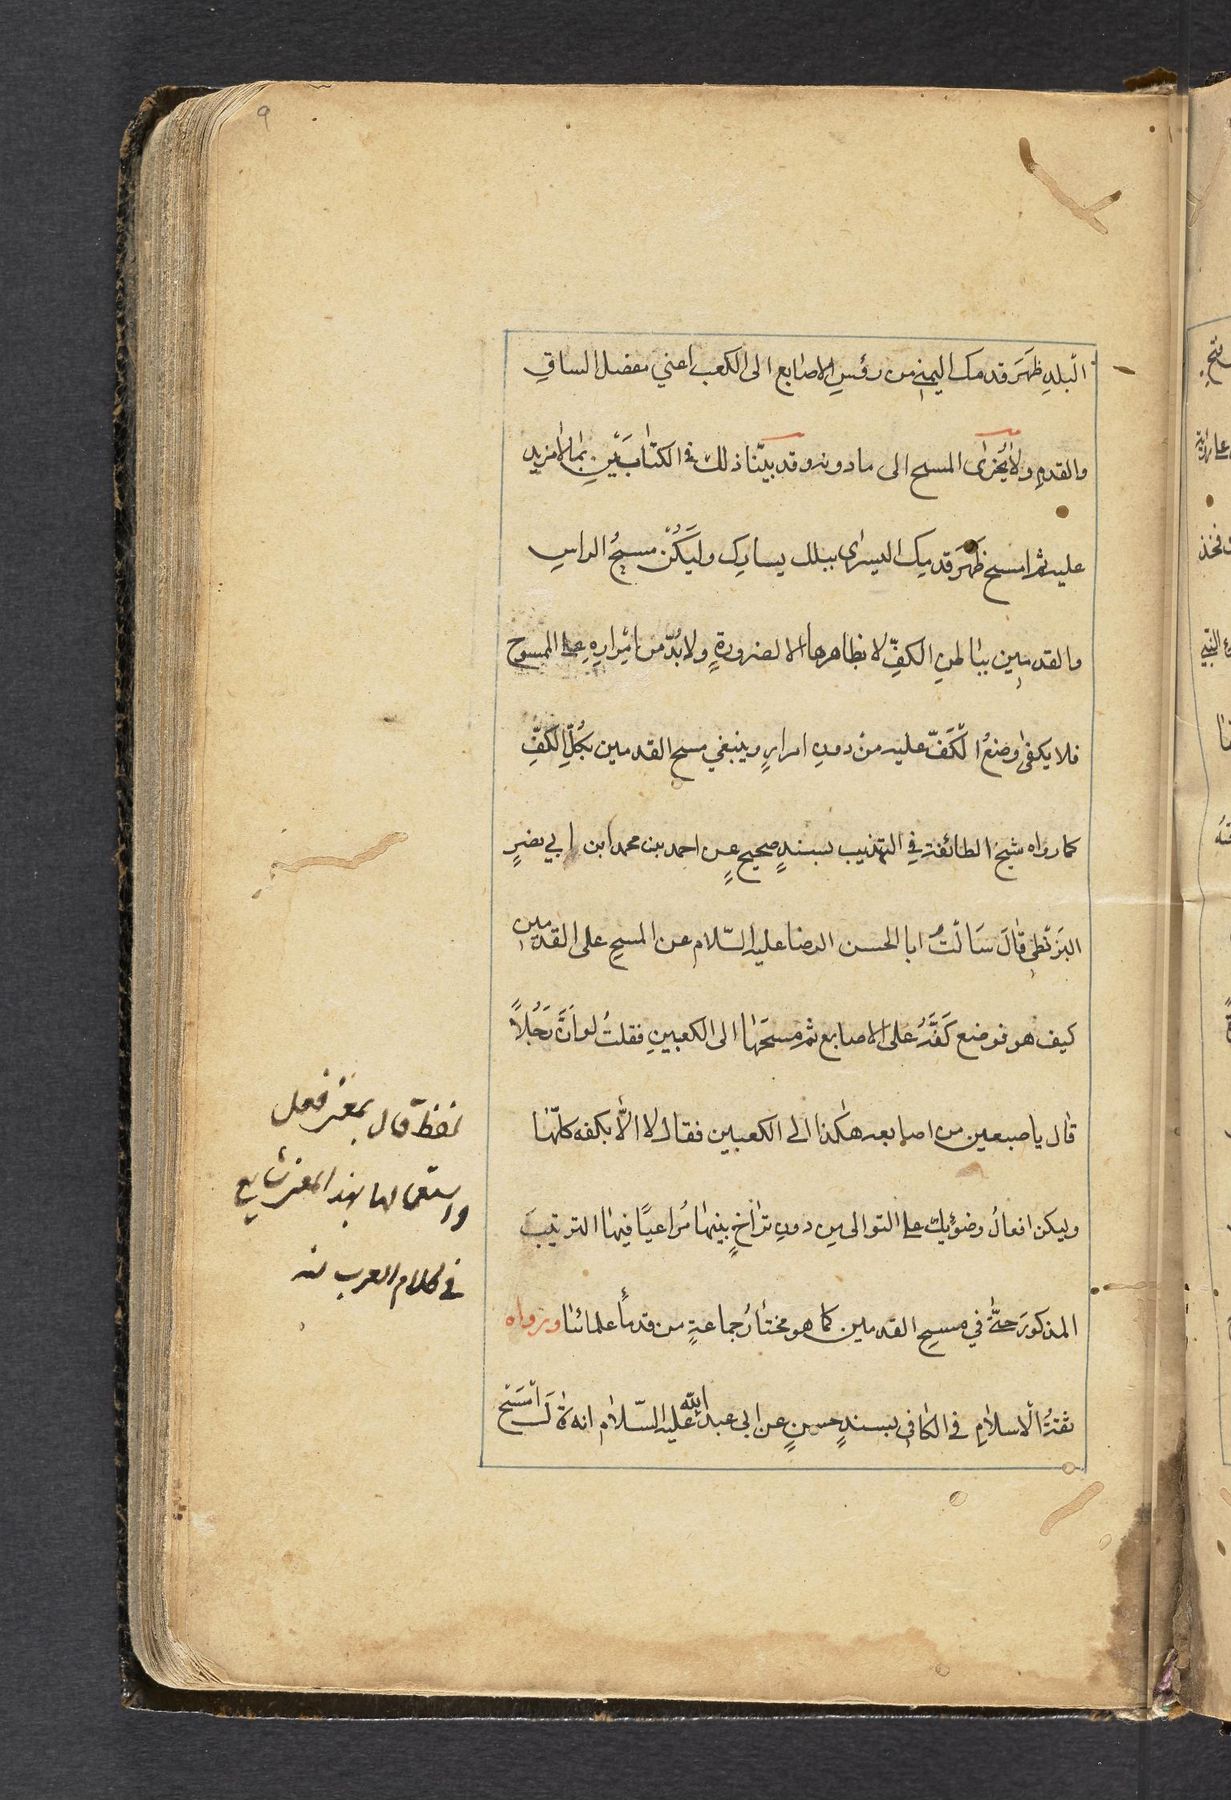 ٩
البلدِ ظَهَرَ قدمك اليمنى من رؤسِ الاصابع الى الكعب اعني مفصل الساقِ
والقدمِ ولا يُجزى المسح الى مادونه وقد بيّنا ذلك في الكتابَينِ بما لا مزيد
عليه ثم امسح ظَهَرَ قدمك اليسرى ببلل يسارك وليكُن مسحُ الراسِ
والقدمين بباطنِ الكفِّ لا بظاهرها الا لضرورةٍ ولا بُدّ من اِمْرارِهِ على الممسوح
فلا يكفى وضعُ الكَفّ عليه من دونِ امرارٍ وينبغي مسح القدمين بكُلِّ الكفِّ
كما رواه شيخُ الطائفة في التهذيب بسندٍ صحيحٍ عن احمد بن محمد ابن ابي نصرٍ
البزَنْطي قالَ سَالْتُ ابا الحسن الرضا عليه السّلام عن المسح على القدمين
كيف هو فوضع كَفَّهُ على الاصابع ثم مسحَها الى الكعبينِ فقلتُ لو اَنَّ رَجُلاً
قال باصبعين من اصابعه هكذا الى الكعبين فقال لا الّا بكفه كلّها
وليكن افعالُ وضوئِك على التوالى من دونِ تراخٍ بينها مُراعياً فيها الترتيبَ
المذكورَ حتّى في مسحِ القدمين كما هو مختارُ جماعةٍ من قدمأ علمائنا ورواه
ثقةُ الاسلامِ في الكافي بسندٍ حسنٍ عن ابى عبد الله عليه السّلام انه قالَ اَمْسَحْ
لفظ قال بمعنى فعل
واستعمالها بهذا المعنى شايع
في كلام العرب منه